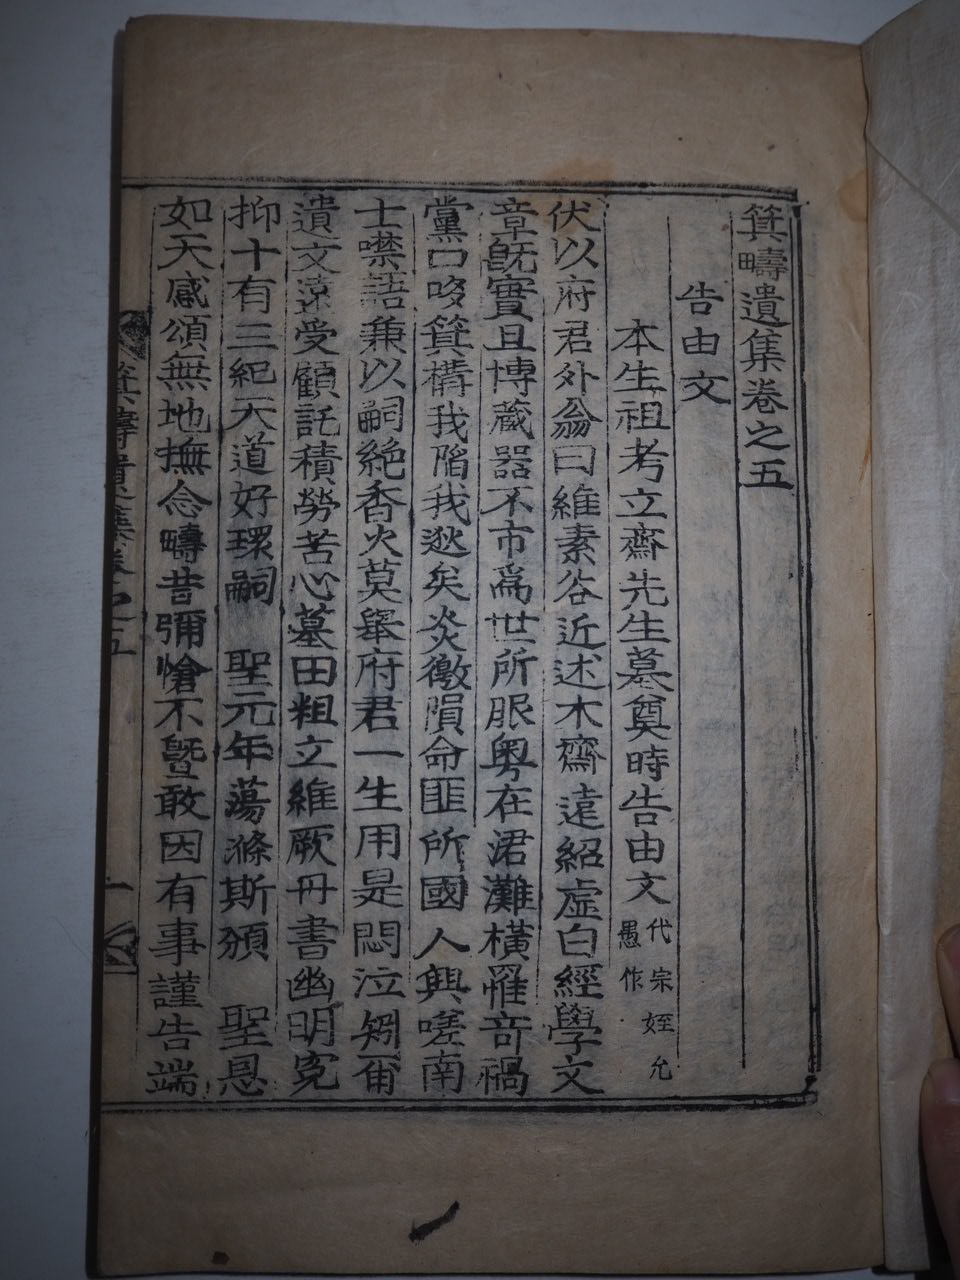 箕疇遺集卷之五
告由文
本生祖考立齋先生墓奠時告由文 代宗姪允愚作
伏以府君外翁曰維素谷近述木齋遠紹虛白經學文
章旣實且博藏器不市爲世所服粤在涒灘橫罹奇禍
黨口咬箕構我陷我逖矣炎徼隕命匪所國人興嗟南
士噤語兼以嗣絶香火莫擧府君一生用是悶泣矧爾
遺文遠受顧託積勞苦心墓田粗立維厥冊書幽明寃
抑十有三紀天道好環嗣 聖元年蕩滌斯頒 聖恩
如天感頌無地撫念疇昔彌愴不曁敢因有事謹告端
箕疇遺集卷之五 一